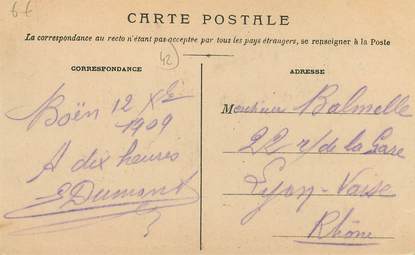 6 €
CARTE POSTALE
La correspondance au recto n'étant pas acceptée par tous les pays étrangers, se renseigner à la Poste
42
CORRESPONDANCE
Boën 12 Xbre
1909
A dix heures
E Dumont
ADRESSE
Monsieur Balmelle
22 r/ de la Gare
Lyon-Vaise
Rhône